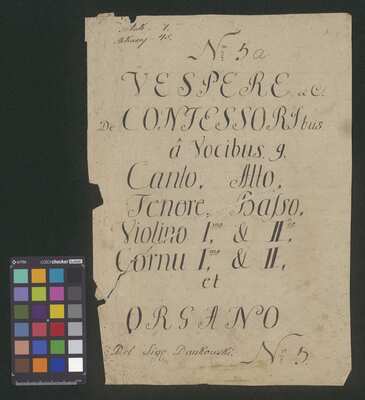 Nro 5 a
VESPERE
De CONFESSORIbus
â Vocibus 9.
Canto, Alto,
Tenore, Basso,
Violino I.mo & II.do
Cornu I.mo & II.
et
ORGANO
Del Sigr Dankowski. Nro 5.
colorchecker